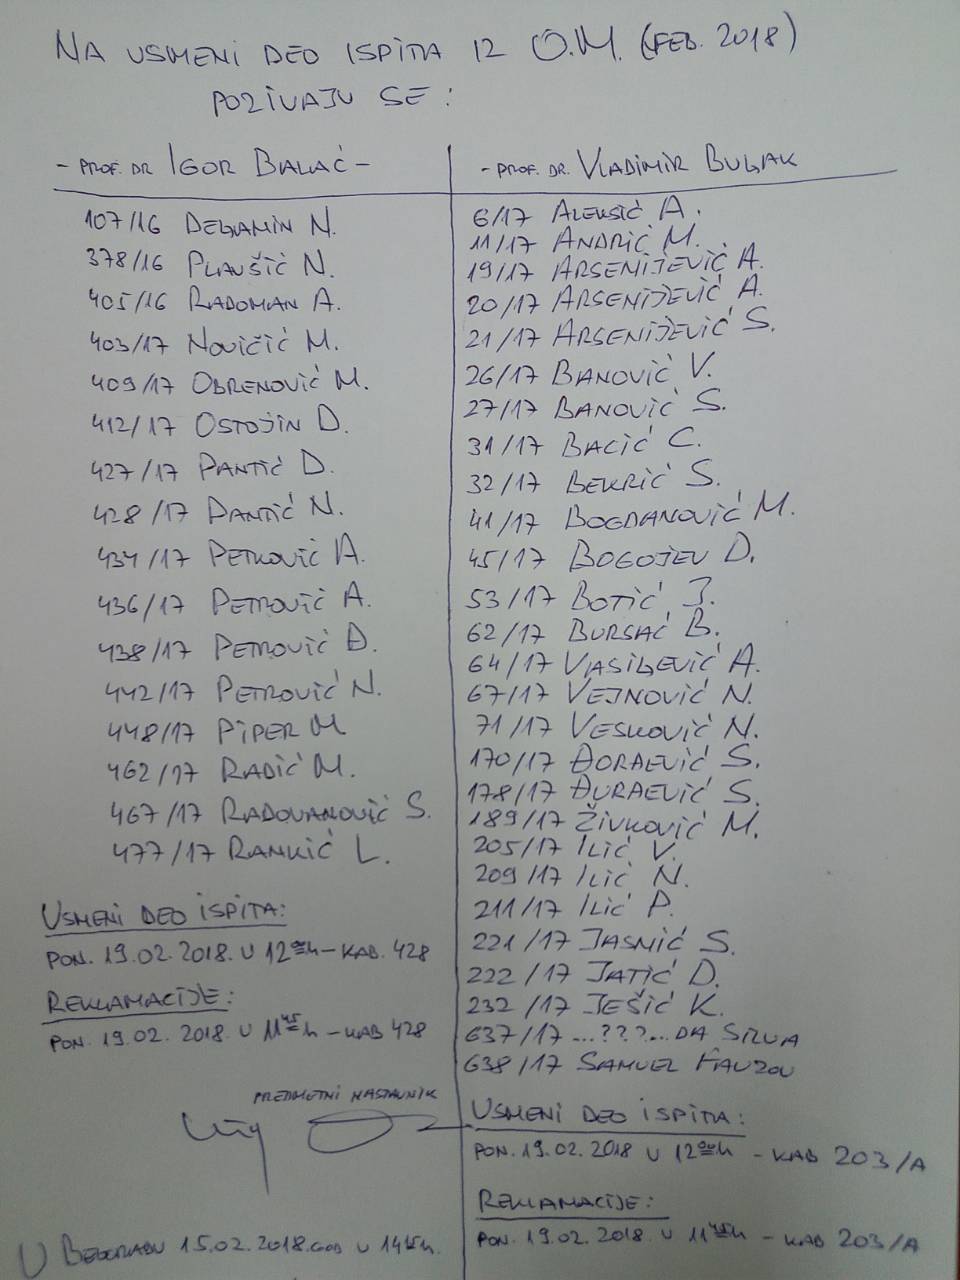 NA USMENI DEO ISPITA IZ O.M. (FEB. 2018)
POZIVAJU SE:
- PROF. DR IGOR BALAĆ -
107/16 DELJAMIN N.
378/16 PLAVŠIĆ N.
405/16 RADOMAN A.
403/17 NOVIČIĆ M.
409/17 OBRENOVIĆ M.
412/17 OSTOJIN D.
427/17 PANTIĆ D.
428/17 PANTIĆ N.
434/17 PETKOVIĆ A.
436/17 PETROVIĆ A.
438/17 PETROVIĆ Đ.
442/17 PETROVIĆ N.
448/17 PIPER M
462/17 RADIĆ M.
467/17 RADOVANOVIĆ S.
477/17 RANKIĆ L.
USMENI DEO ISPITA:
PON. 19.02.2018. U 12 00 h - KAB. 428
REKLAMACIJE:
PON. 19.02.2018. U 11 45 h - KAB 428
PREDMETNI NASTAVNIK
U BEOGRADU 15.02.2018. GOD U 14 15 h.
- PROF. DR. VLADIMIR BULJAK
6/17 ALEKSIĆ A.
11/17 ANDRIĆ M.
19/17 ARSENIJEVIĆ A.
20/17 ARSENIJEVIĆ A.
21/17 ARSENIJEVIĆ S.
26/17 BANOVIĆ V.
27/17 BANOVIĆ S.
31/17 BACIĆ C.
32/17 BEKRIĆ S.
41/17 BOGDANOVIĆ M.
45/17 BOGOJEV D.
53/17 BOTIĆ J.
62/17 BURSAĆ B.
64/17 VASILJEVIĆ A.
67/17 VEJNOVIĆ N.
71/17 VESKOVIĆ N.
170/17 ĐORĐEVIĆ S.
178/17 ĐURĐEVIĆ S.
189/17 ŽIVKOVIĆ M.
205/17 ILIĆ V.
209/17 ILIĆ N.
211/17 ILIĆ P.
221/17 JASNIĆ S.
222/17 JATIĆ D.
232/17 JEŠIĆ K.
637/17 ...???... DA SILVA
638/17 SAMUEL FAUZOU
USMENI DEO ISPITA:
PON. 19.02.2018 U 12 00 h - KAB 203/A
REKLAMACIJE:
PON. 19.02.2018. U 11 45 h - KAB 203/A